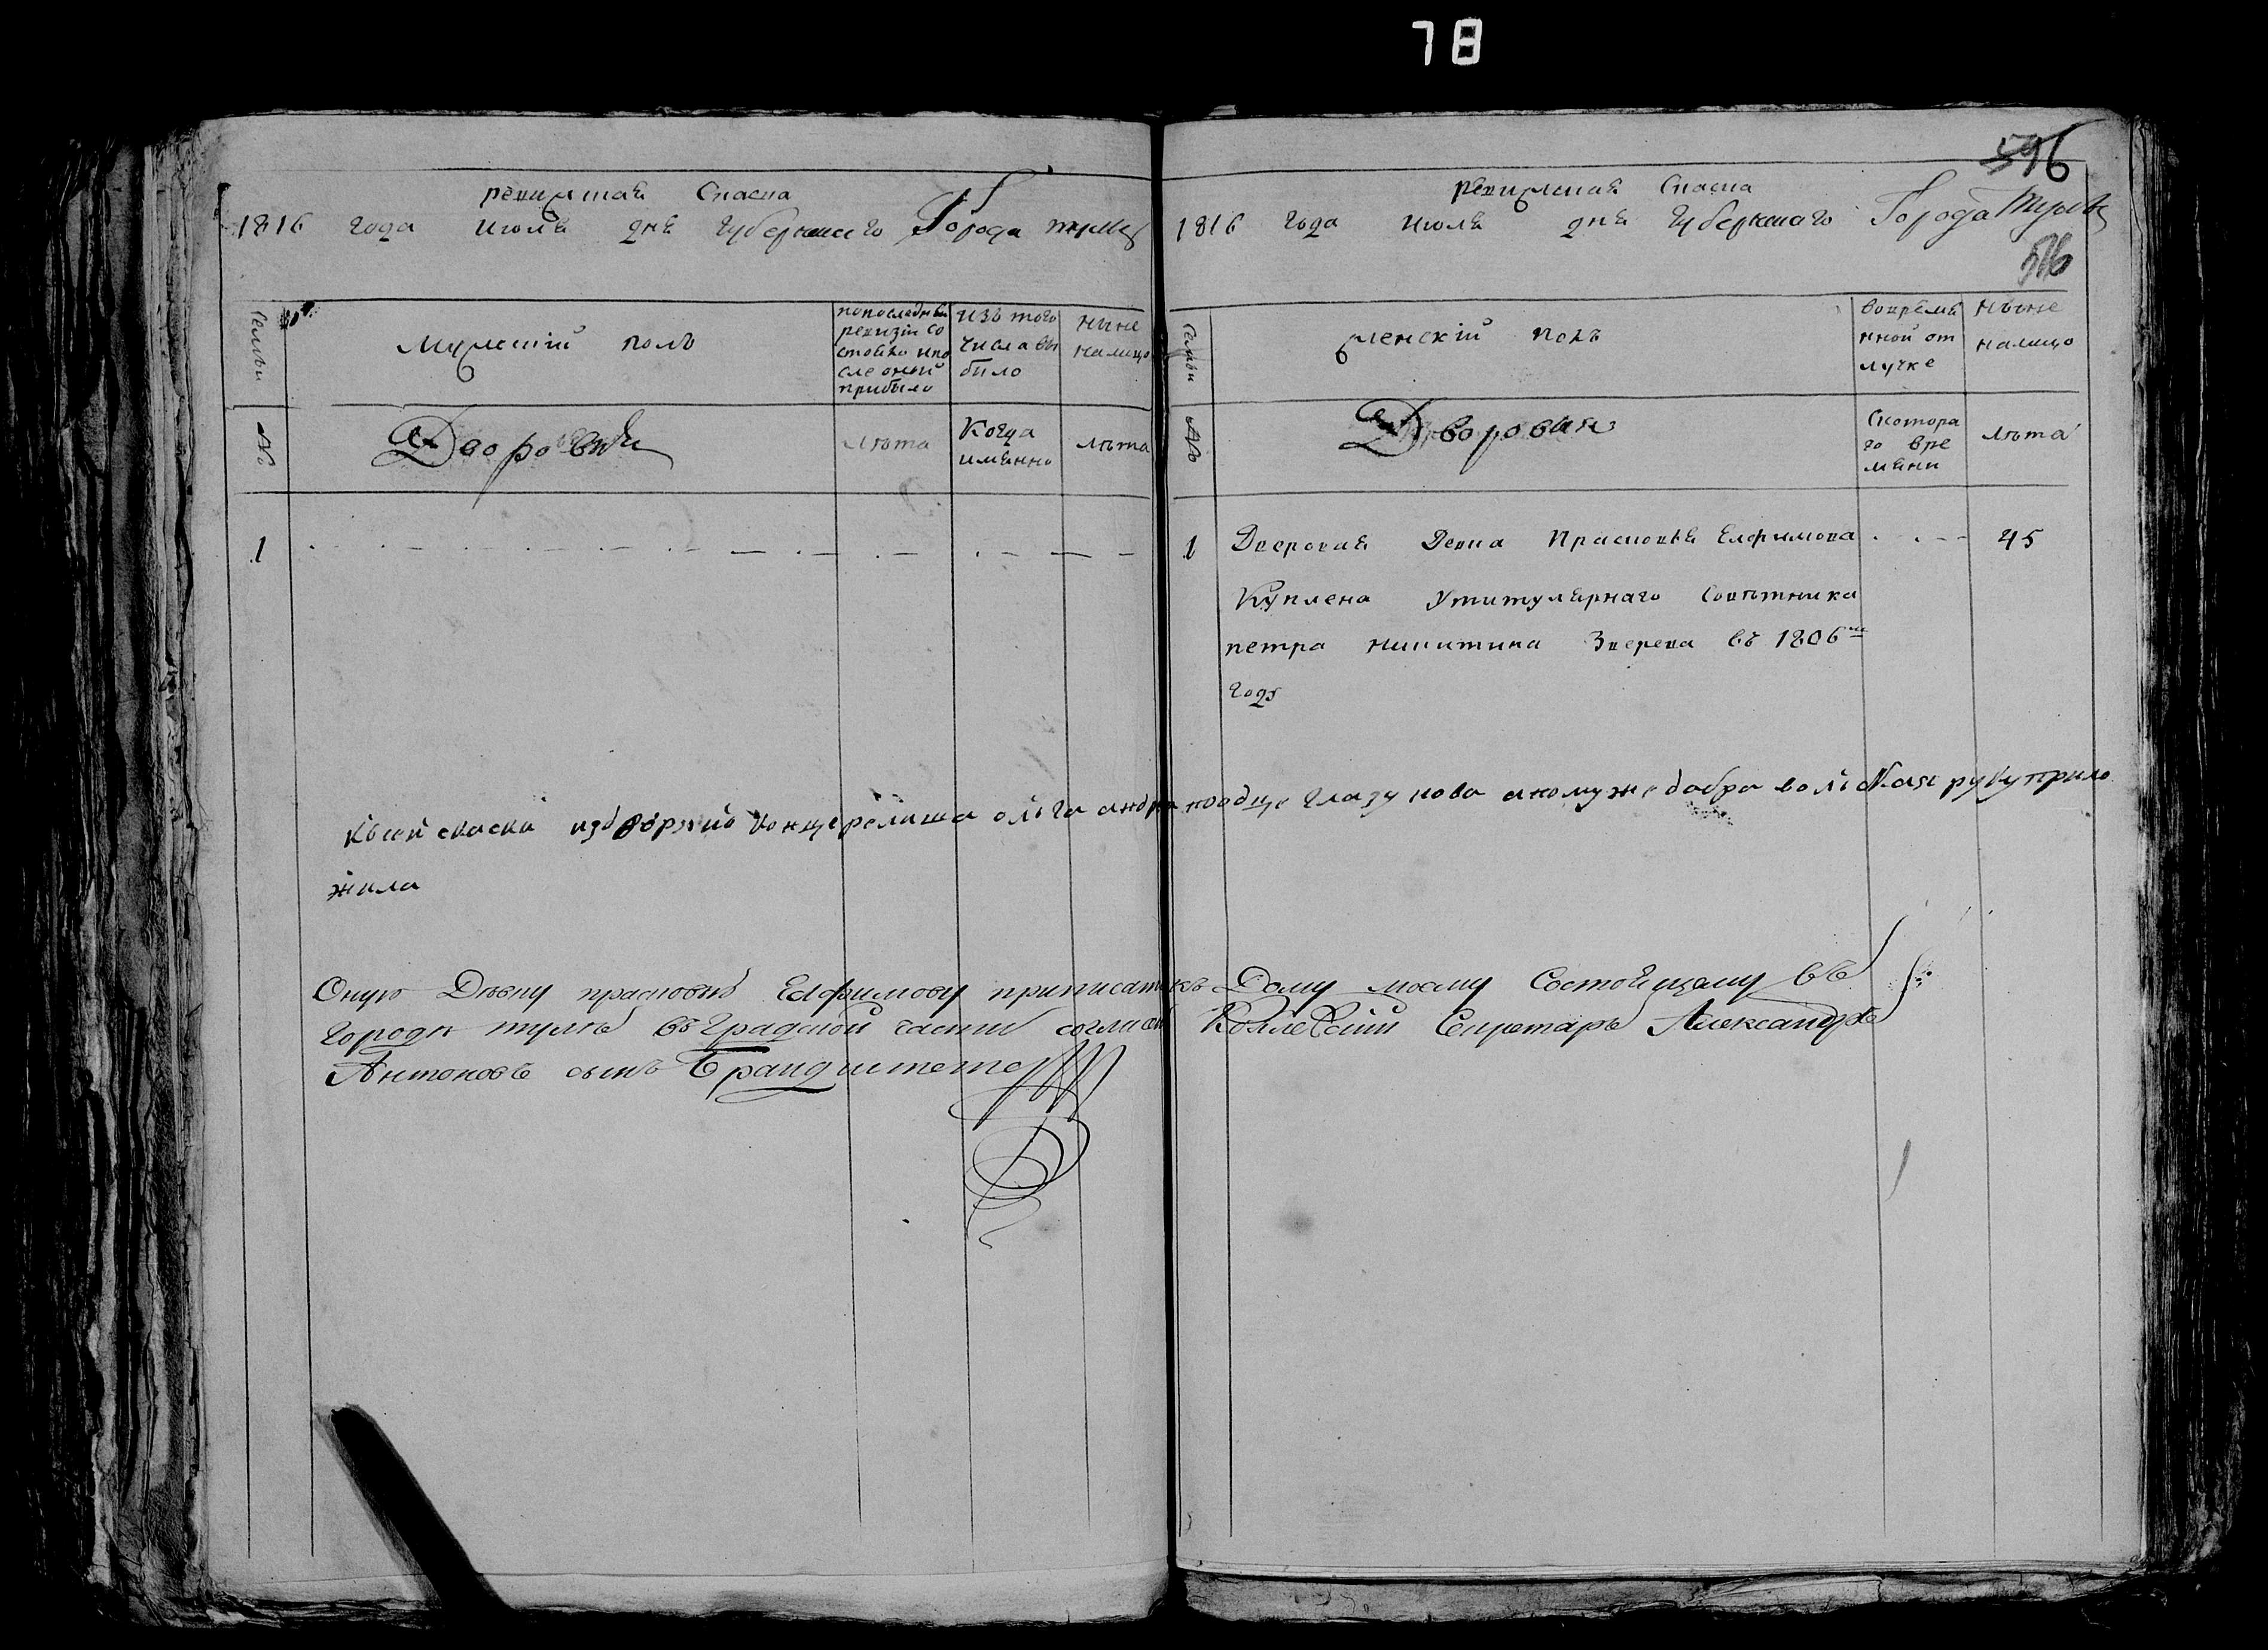 78
596
ревижская Скаска
1816 года июля дня губернскаго Города тулы
Семьи
Мужеский полъ
попоследней ревизiи со стояло ипо сле оной прибыло
изъ того числа вы было
ныне налицо
№
Дворовыя
лѣта
Когда имянно
лѣта
1
ревижская Скаска
1816 года июля дня губернскаго Города Тулы
516
Семьи
женскiй полъ
вовремѣ нной от лучке
Ныне налицо
№
Дворовыя
Скотора го вре мяни
лѣта
1 Дворовая Девка Прасковья Елфимова 45
Куплена Утитулярнаго Советника
петра никитина Зверева въ 1806м
годү
Ксей скаски
ольга глазунова руку прило
жила
Оную Дѣвку прасковью Елфимову приписать къ Дому моему Состоящему въ
городѣ тулѣ въ Градской части согласенъ Коллежскiй Секретарь Александръ
Антоновъ сынъ Брандштетеръ